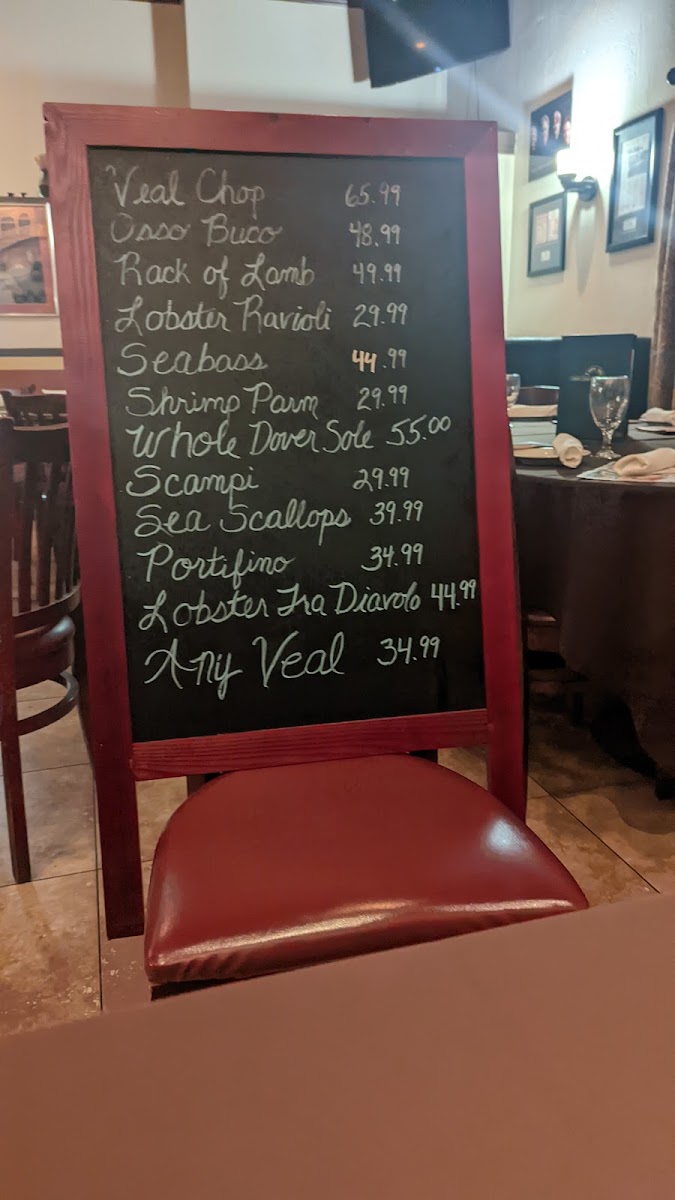 Veal Chop 65.99
Osso Buco 48.99
Rack of Lamb 49.99
Lobster Ravioli 29.99
Seabass 44.99
Shrimp Parm 29.99
Whole Dover Sole 55.00
Scampi 29.99
Sea Scallops 39.99
Portifino 34.99
Lobster Fra Diavolo 44.99
Any Veal 34.99